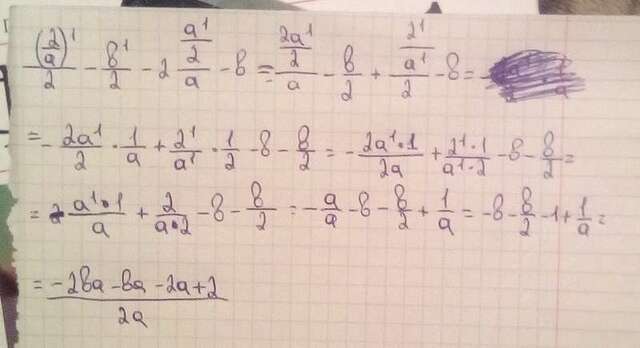 ((2/a)^1)/2 - в^1/2 - 2 (a^1/2)/a - в = (2a^1/2)/a - в/2 + (2^1/a^1)/2 - в =
= - 2a^1/2 · 1/a + 2^1/a^1 · 1/2 - в - в/2 = - 2a^1·1/2a + 2^1·1/a^1·2 - в - в/2 =
= - a^1·1/a + 2/a·2 - в - в/2 = - a/a - в - в/2 + 1/a = -в - в/2 - 1 + 1/a =
= (-2вa - вa - 2a + 2)/2a